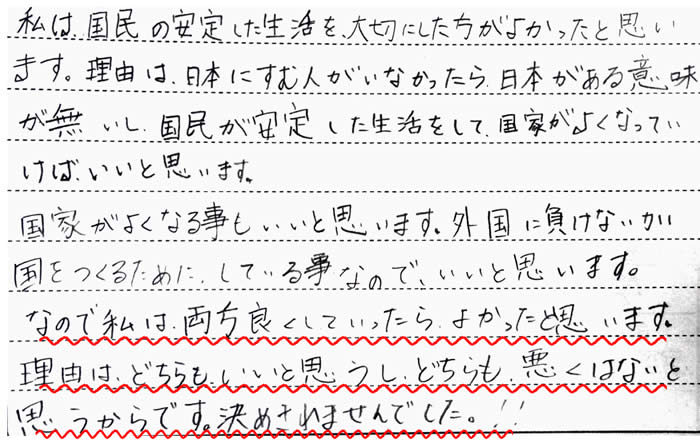 私は、国民の安定した生活を、大切にした方がよかったと思い
ます。理由は、日本にすむ人がいなかったら、日本がある意味
が無いし、国民が安定した生活をして、国家がよくなってい
けば、いいと思います。
国家がよくなる事もいいと思います。外国に負けない
国をつくるために、している事なので、いいと思います。
なので私は、両方良くしていったら、よかったと思います。
理由は、どちらも、いいと思うし、どちらも、悪くはないと
思うからです。決めきれませんでした。!!